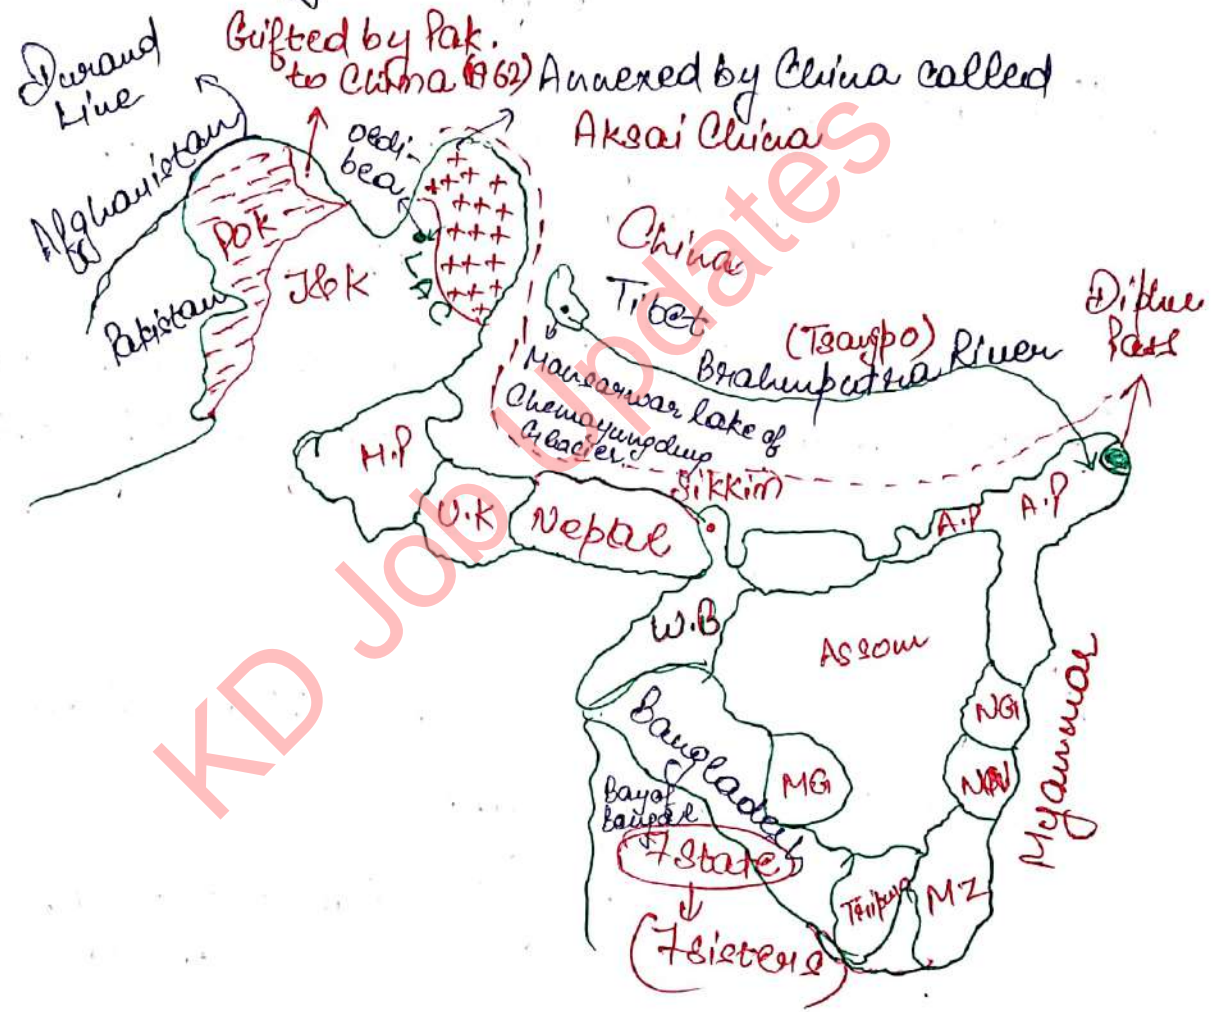 Durand
Line
Gifted by Pak.
to China (1962)
Annexed by China called
Aksai China
Afghanistan
POK
J&K
Pakistan
LAC
China
Tibet
(Tsangpo)
Brahmputra River
Diphu
Pass
Mansarwar lake of
Chemayungdung
Glacier
H.P
U.K
Nepal
Sikkim
A.P
A.P
W.B
Assom
NG
Myanmar
Bangladesh
MG
Bay of
Bangal
7 State
Tripura
MZ
(7 sisters)
KD Job Updates